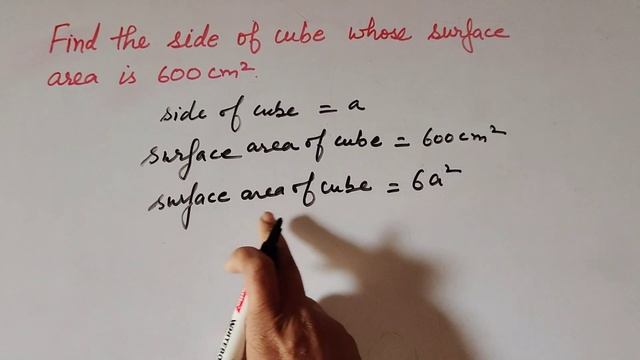 Find the side of cube whose surface
area is 600 cm².
side of cube = a
surface area of cube = 600 cm²
surface area of cube = 6a²